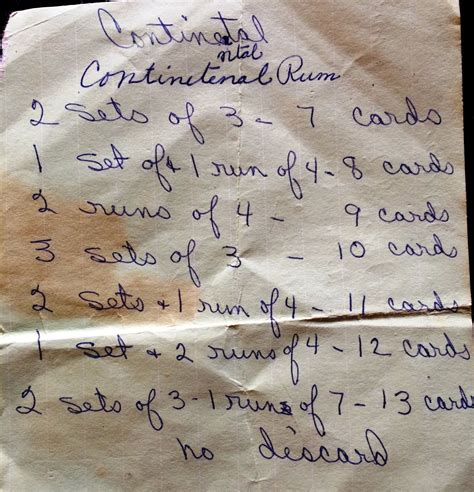 Continetal
ntal
Continetenal Rum
2 sets of 3 - 7 cards
1 set of + 1 run of 4 - 8 cards
2 runs of 4 - 9 cards
3 sets of 3 - 10 cards
2 sets + 1 run of 4 - 11 cards
1 set + 2 runs of 4 - 12 cards
2 sets of 3 - 1 run of 7 - 13 cards
no discard